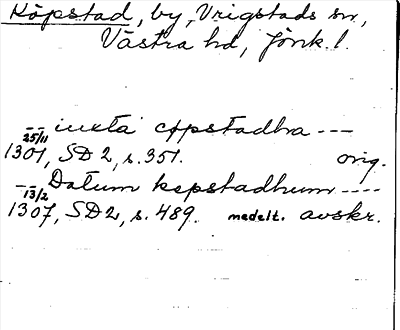 Köpstad, by, Vrigstads sn,
Västra hd, Jönk. l.
--- iuxta cøpstadha ---
25/11
1301, SD 2, s. 351. orig.
--- Datum kepstadhum ----
13/2
1307, SD 2, s. 489. medelt. avskr.